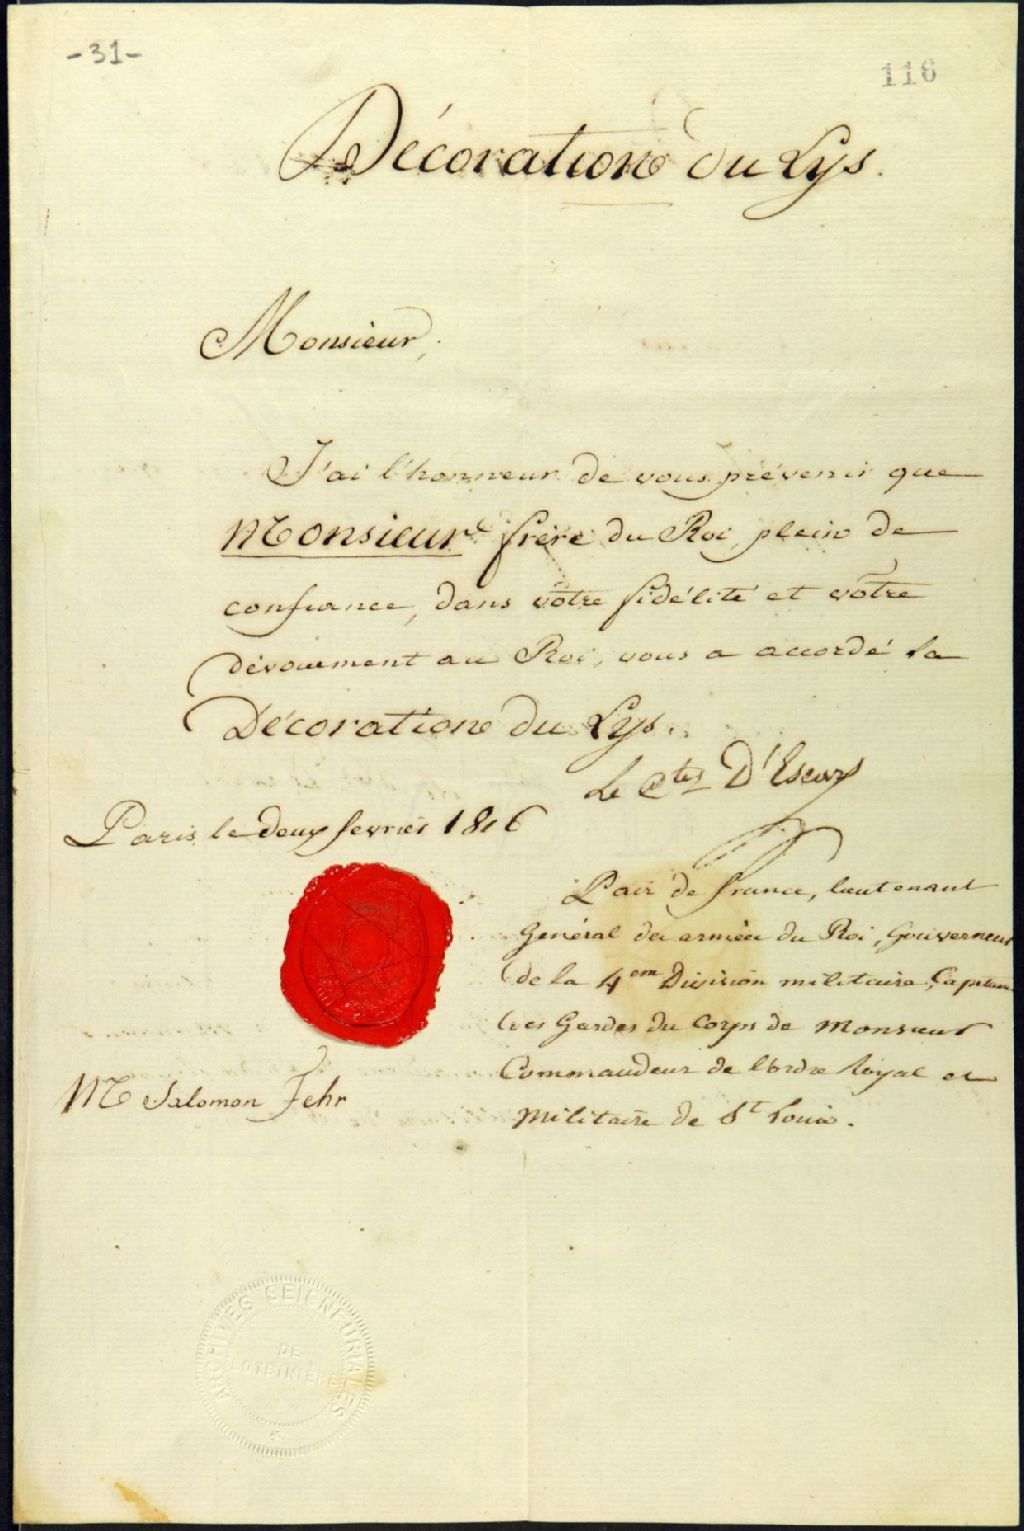 -31-
116
Décoration du Lys.
Monsieur,
J'ai l'honneur de vous prévenir que
Monsieur frère du Roi, plein de
confiance, dans vôtre fidélité et vôtre
dévouement au Roi, vous a accordé la
Décoration du Lys.
Le Ctes D'Escars
Paris, le deux fevrier 1816
Pair de france, lieutenant
Général des armées du Roi, Gouverneur
de la 4em Division militaire, Capitaine
des Gardes du Corps de Monsieur
Commandeur de l'ordre Royal et
Militaire de St Louis.
Mr Salomon Fehr
ARCHIVES SEIGNEURIALES
DE
LOTBINIÈRE